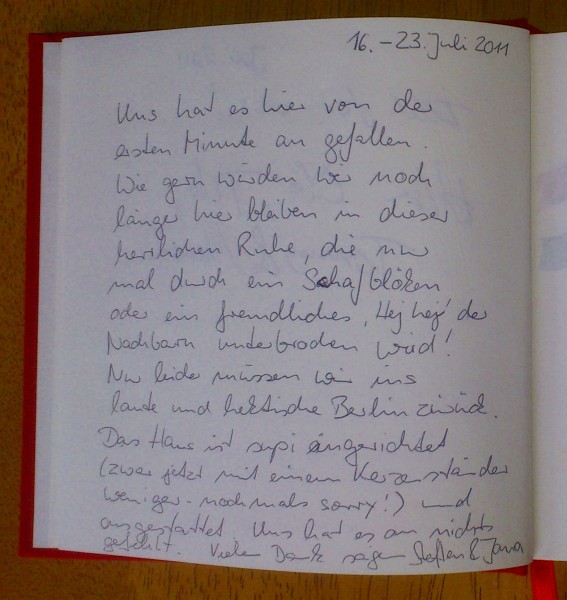 16. – 23. Juli 2011
Uns hat es hier von der
ersten Minute an gefallen.
Wie gern würden wir noch
länger hier bleiben in dieser
herrlichen Ruhe, die nur
mal durch ein Schafblöken
oder ein freundliches ‚Hej hej' der
Nachbarn unterbrochen wird!
Nur leider müssen wir ins
laute und hektische Berlin zurück.
Das Haus ist supi eingerichtet
(zwar jetzt mit einem Kerzenständer
weniger - nochmals sorry!) und
ausgestattet. Uns hat es an nichts
gefehlt. Vielen Dank sagen Steffen & Jana